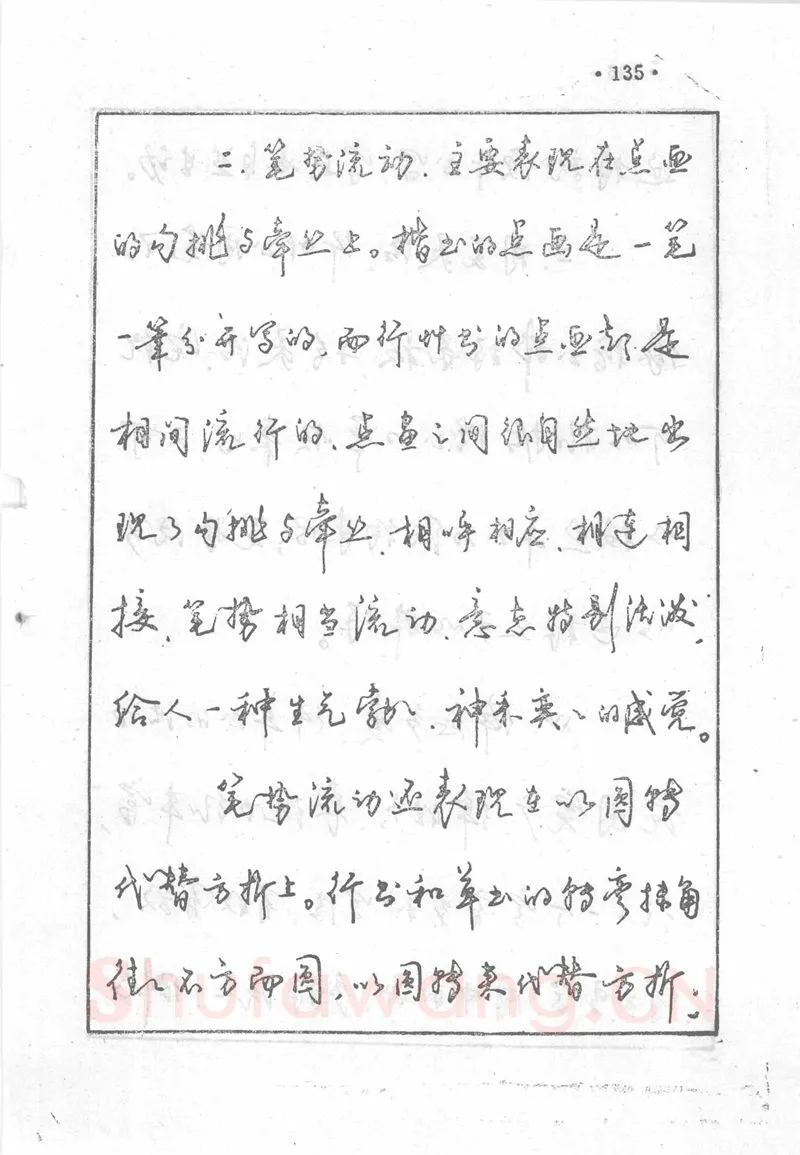 ·135·
二、笔势流动，主要表现在点画
的勾挑与牵丝上。楷书的点画是一笔
一笔分开写的，而行草书的点画却是
相间流行的，点画之间很自然地出
现了勾挑与牵丝，相呼相应，相连相
接，笔势相当流动，意态特别活泼，
给人一种生气勃勃、神采奕奕的感觉。
笔势流动还表现在以圆转
代替方折上。行书和草书的转弯抹角
往往不方而圆，以圆转来代替方折；
Shufawang.CN